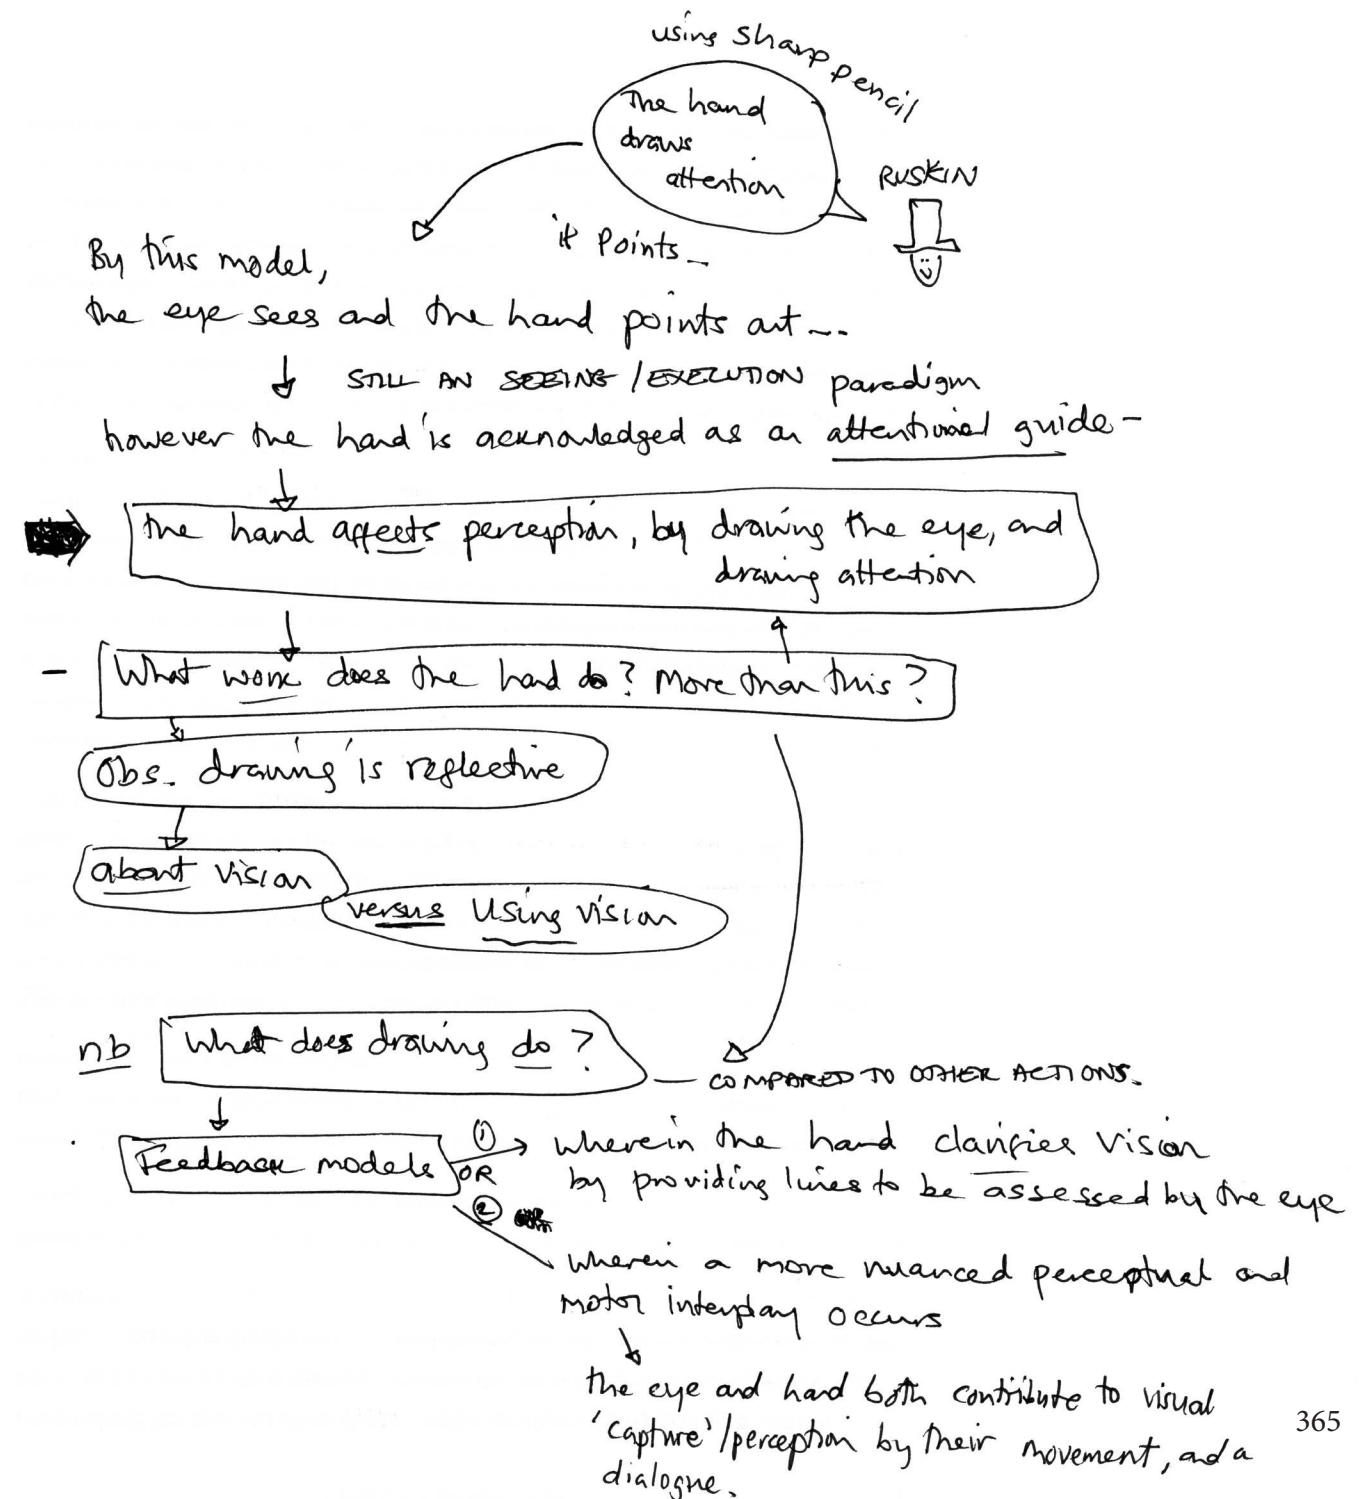 using sharp pencil
The hand
draws
attention
RUSKIN
it points_
By this model,
the eye sees and the hand points out ---
STILL AN SEEING / EXECUTION paradigm
however the hand is acknowledged as an attentional guide -
the hand affects perception, by drawing the eye, and
drawing attention
- What work does the hand do? More than this?
Obs. drawing is reflective
about vision
versus using vision
nb What does drawing do?
— COMPARED TO OTHER ACTIONS.
Feedback models
① wherein the hand clarifies vision
by providing lines to be assessed by the eye
OR
②
wherein a more nuanced perceptual and
motor interplay occurs
the eye and hand both contribute to visual
'capture'/perception by their movement, and a
dialogue.
365